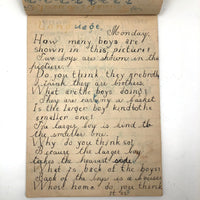 Monday.
How many boys are
shown in this picture?
Two boys are shown in the
picture.
Do you think they are
I think they are brothers.
What are the boys doing?
They are carrying a basket.
Is the larger boy kind to the
smaller one?
The larger boy is kind to
the smaller one.
Why do you think so?
Because the larger boy
takes the heaviest
What is back of the boys?
Back of the boys is a
Whose home do you think
it is?